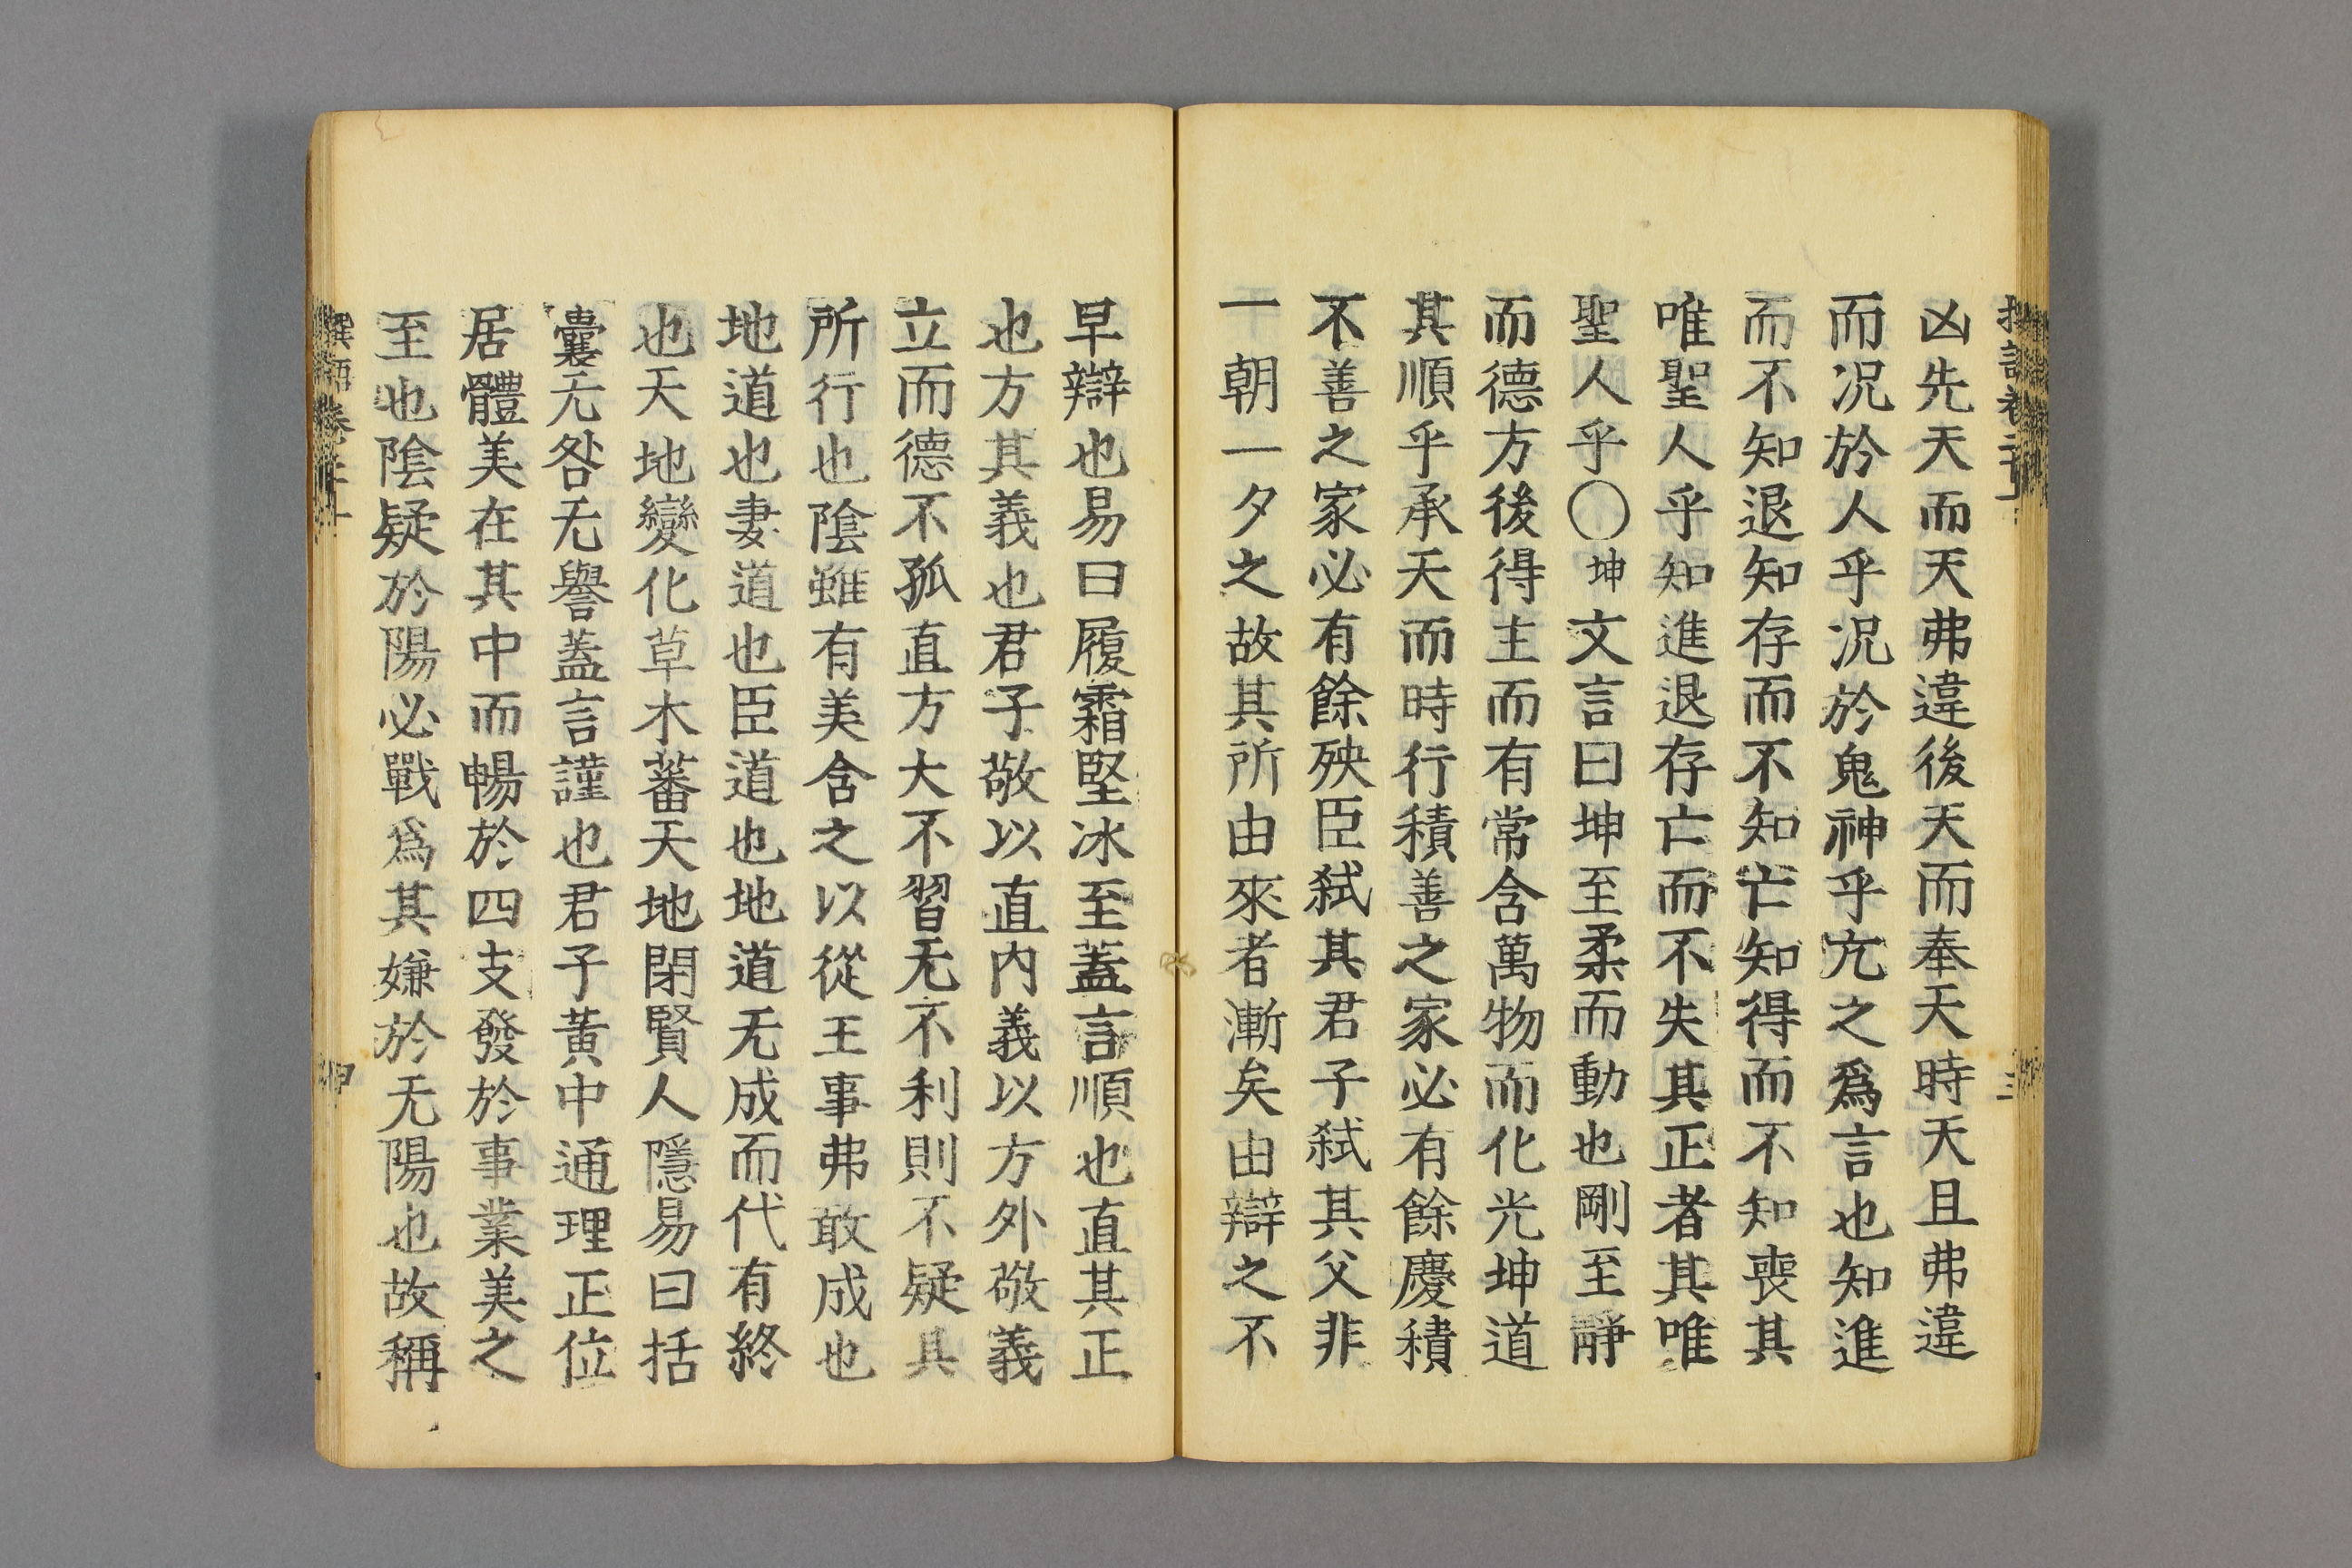 凶先天而天弗違後天而奉天時天且弗違
而况於人乎况於鬼神乎亢之爲言也知進
而不知退知存而不知亡知得而不知喪其
唯聖人乎知進退存亡而不失其正者其唯
聖人乎〇坤文言曰坤至柔而動也剛至靜
而德方後得主而有常含萬物而化光坤道
其順乎承天而時行積善之家必有餘慶積
不善之家必有餘殃臣弑其君子弑其父非
一朝一夕之故其所由來者漸矣由辯之不
早辯也易曰履霜堅冰至蓋言順也直其正
也方其義也君子敬以直内義以方外敬義
立而德不孤直方大不習无不利則不疑其
所行也陰雖有美含之以從王事弗敢成也
地道也妻道也臣道也地道无成而代有終
也天地變化草木蕃天地閉賢人隱易曰括
囊无咎无譽蓋言謹也君子黃中通理正位
居體美在其中而暢於四支發於事業美之
至也陰疑於陽必戰爲其嫌於无陽也故稱